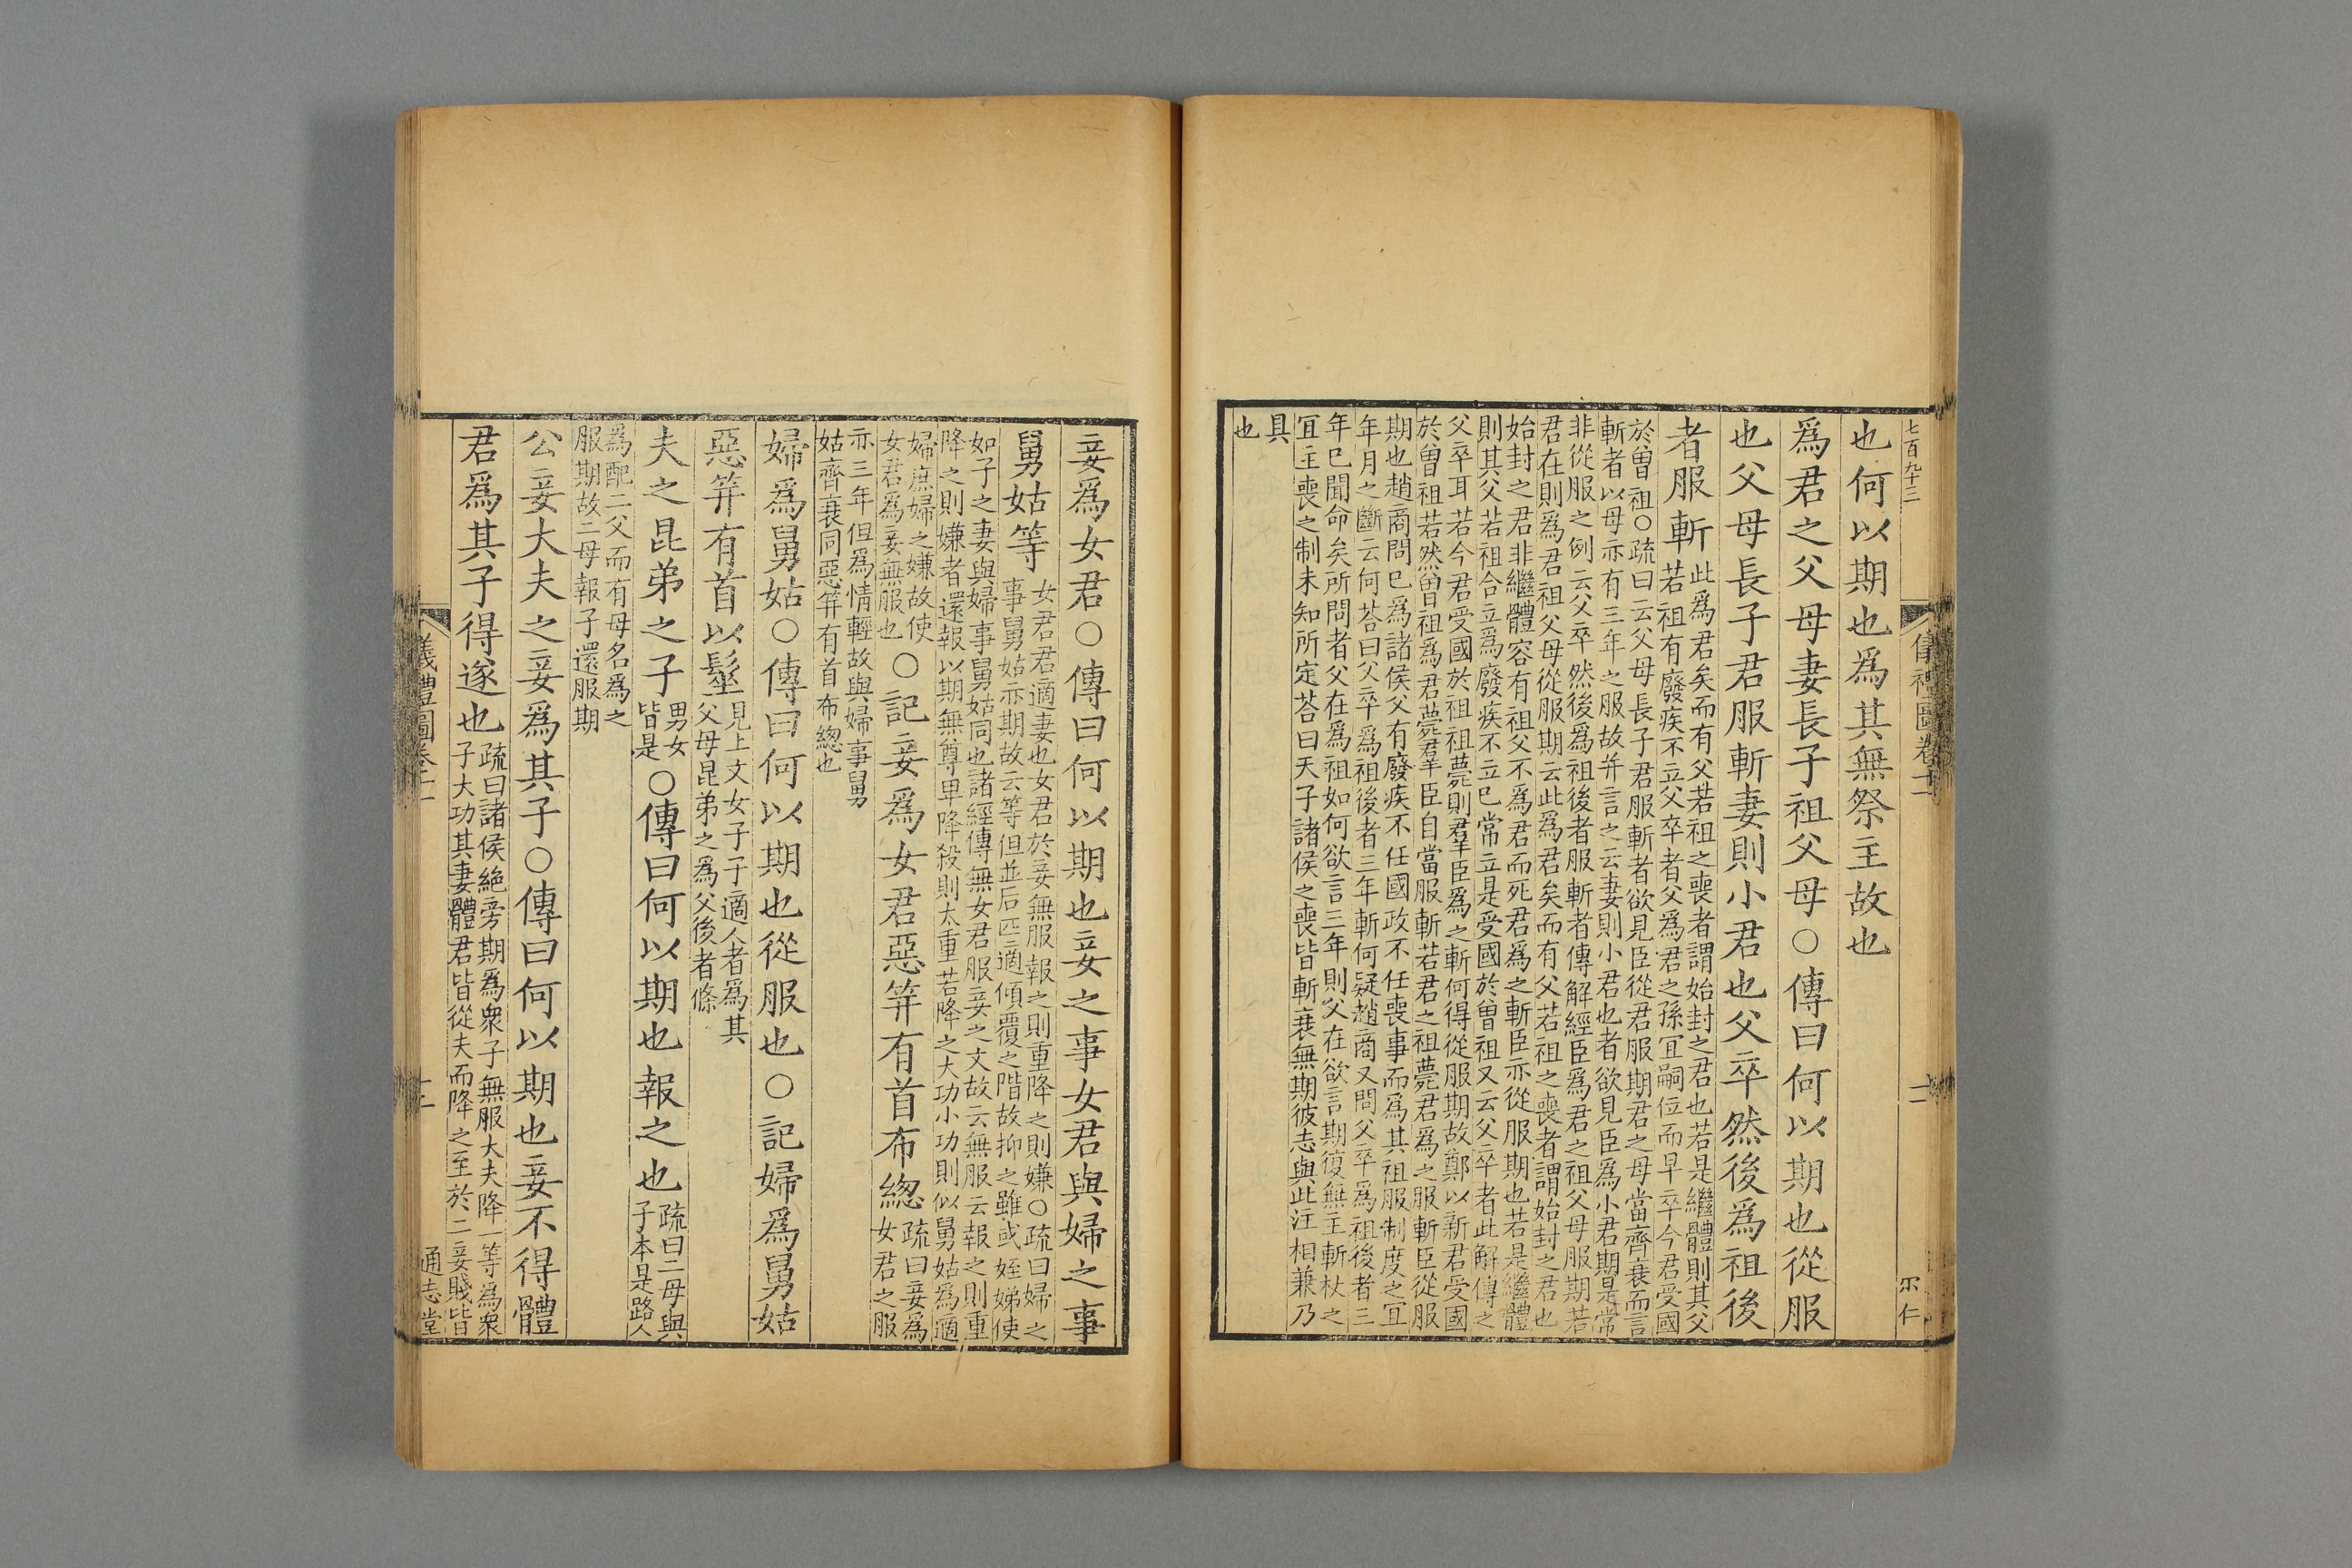 七百九十三
儀禮圖卷十一
十一
尔仁
也何以期也爲其無祭主故也
爲君之父母妻長子祖父母○傳曰何以期也從服
也父母長子君服斬妻則小君也父卒然後爲祖後
者服斬
此爲君矣而有父若祖之喪者謂始封之君也若是繼體則其父
若祖有廢疾不立父卒者父爲君之孫宜嗣位而早卒今君受國
於曾祖○疏曰云父母長子君服斬者欲見臣從君服期君之母當齊衰而言
斬者以母亦有三年之服故并言之云妻則小君也者欲見臣爲小君期是常
非從服之例云父卒然後爲祖後者服斬者傳解經臣爲君之祖父母服期若
君在則爲君祖父母從服期云此爲君矣而有父若祖之喪者謂始封之君也
始封之君非繼體容有祖父不爲君而死君爲之斬臣亦從服期也若是繼體
則其父若祖合立爲廢疾不立已常立是受國於曾祖又云父卒者此解傳之
父卒耳若今君受國於祖祖薨則羣臣爲之斬何得從服期故鄭以新君受國
於曾祖若然曾祖爲君薨羣臣自當服斬若君之祖薨君爲之服斬臣從服
期也趙商問已爲諸侯父有廢疾不任國政不任喪事而爲其祖服制度之宜
年月之斷云何荅曰父卒爲祖後者三年斬何疑趙商又問父卒爲祖後者三
年已聞命矣所問者父在爲祖如何欲言三年則父在欲言期復無主斬杖之
宜主喪之制未知所定荅曰天子諸侯之喪皆斬衰無期彼志與此注相兼乃
具
也
妾爲女君○傳曰何以期也妾之事女君與婦之事
舅姑等
女君君適妻也女君於妾無服報之則重降之則嫌○疏曰婦之
事舅姑亦期故云等但並后匹適傾覆之階故抑之雖或姪娣使
如子之妻與婦事舅姑同也諸經傳無女君服妾之文故云無服云報之則重
降之則嫌者還報以期無尊卑降殺則太重若降之大功小功則似舅姑爲適
婦庶婦之嫌故使
女君爲妾無服也
○記妾爲女君惡笄有首布總
疏曰妾爲
女君之服
亦三年但爲情輕故與婦事舅
姑齊衰同惡笄有首布總也
婦爲舅姑○傳曰何以期也從服也○記婦爲舅姑
惡笄有首以髽
見上文女子子適人者爲其
父母昆弟之爲父後者條
夫之昆弟之子
男女
皆是
○傳曰何以期也報之也
疏曰二母與
子本是路人
爲配二父而有母名爲之
服期故二母報子還服期
公妾大夫之妾爲其子○傳曰何以期也妾不得體
君爲其子得遂也
疏曰諸侯絶旁期爲衆子無服大夫降一等爲衆
子大功其妻體君皆從夫而降之至於二妾賤皆
儀禮圖卷十一
十二
通志堂